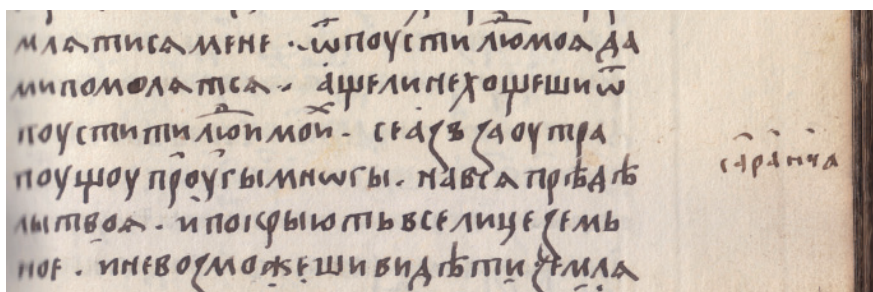 млѧтисѧ мене. ѿпоусти лю҃ моѧ да
ми помолѧтсѧ. аще ли не хощеши ѿ
поустити лю҃и мои҃. се азъ заоутра
поущоу прⷹугы мнѡгы. на всѧ предѣ
лы твоѧ. и покрыють все лице земь
ное. и не возможеши видѣти землѧ
саранча